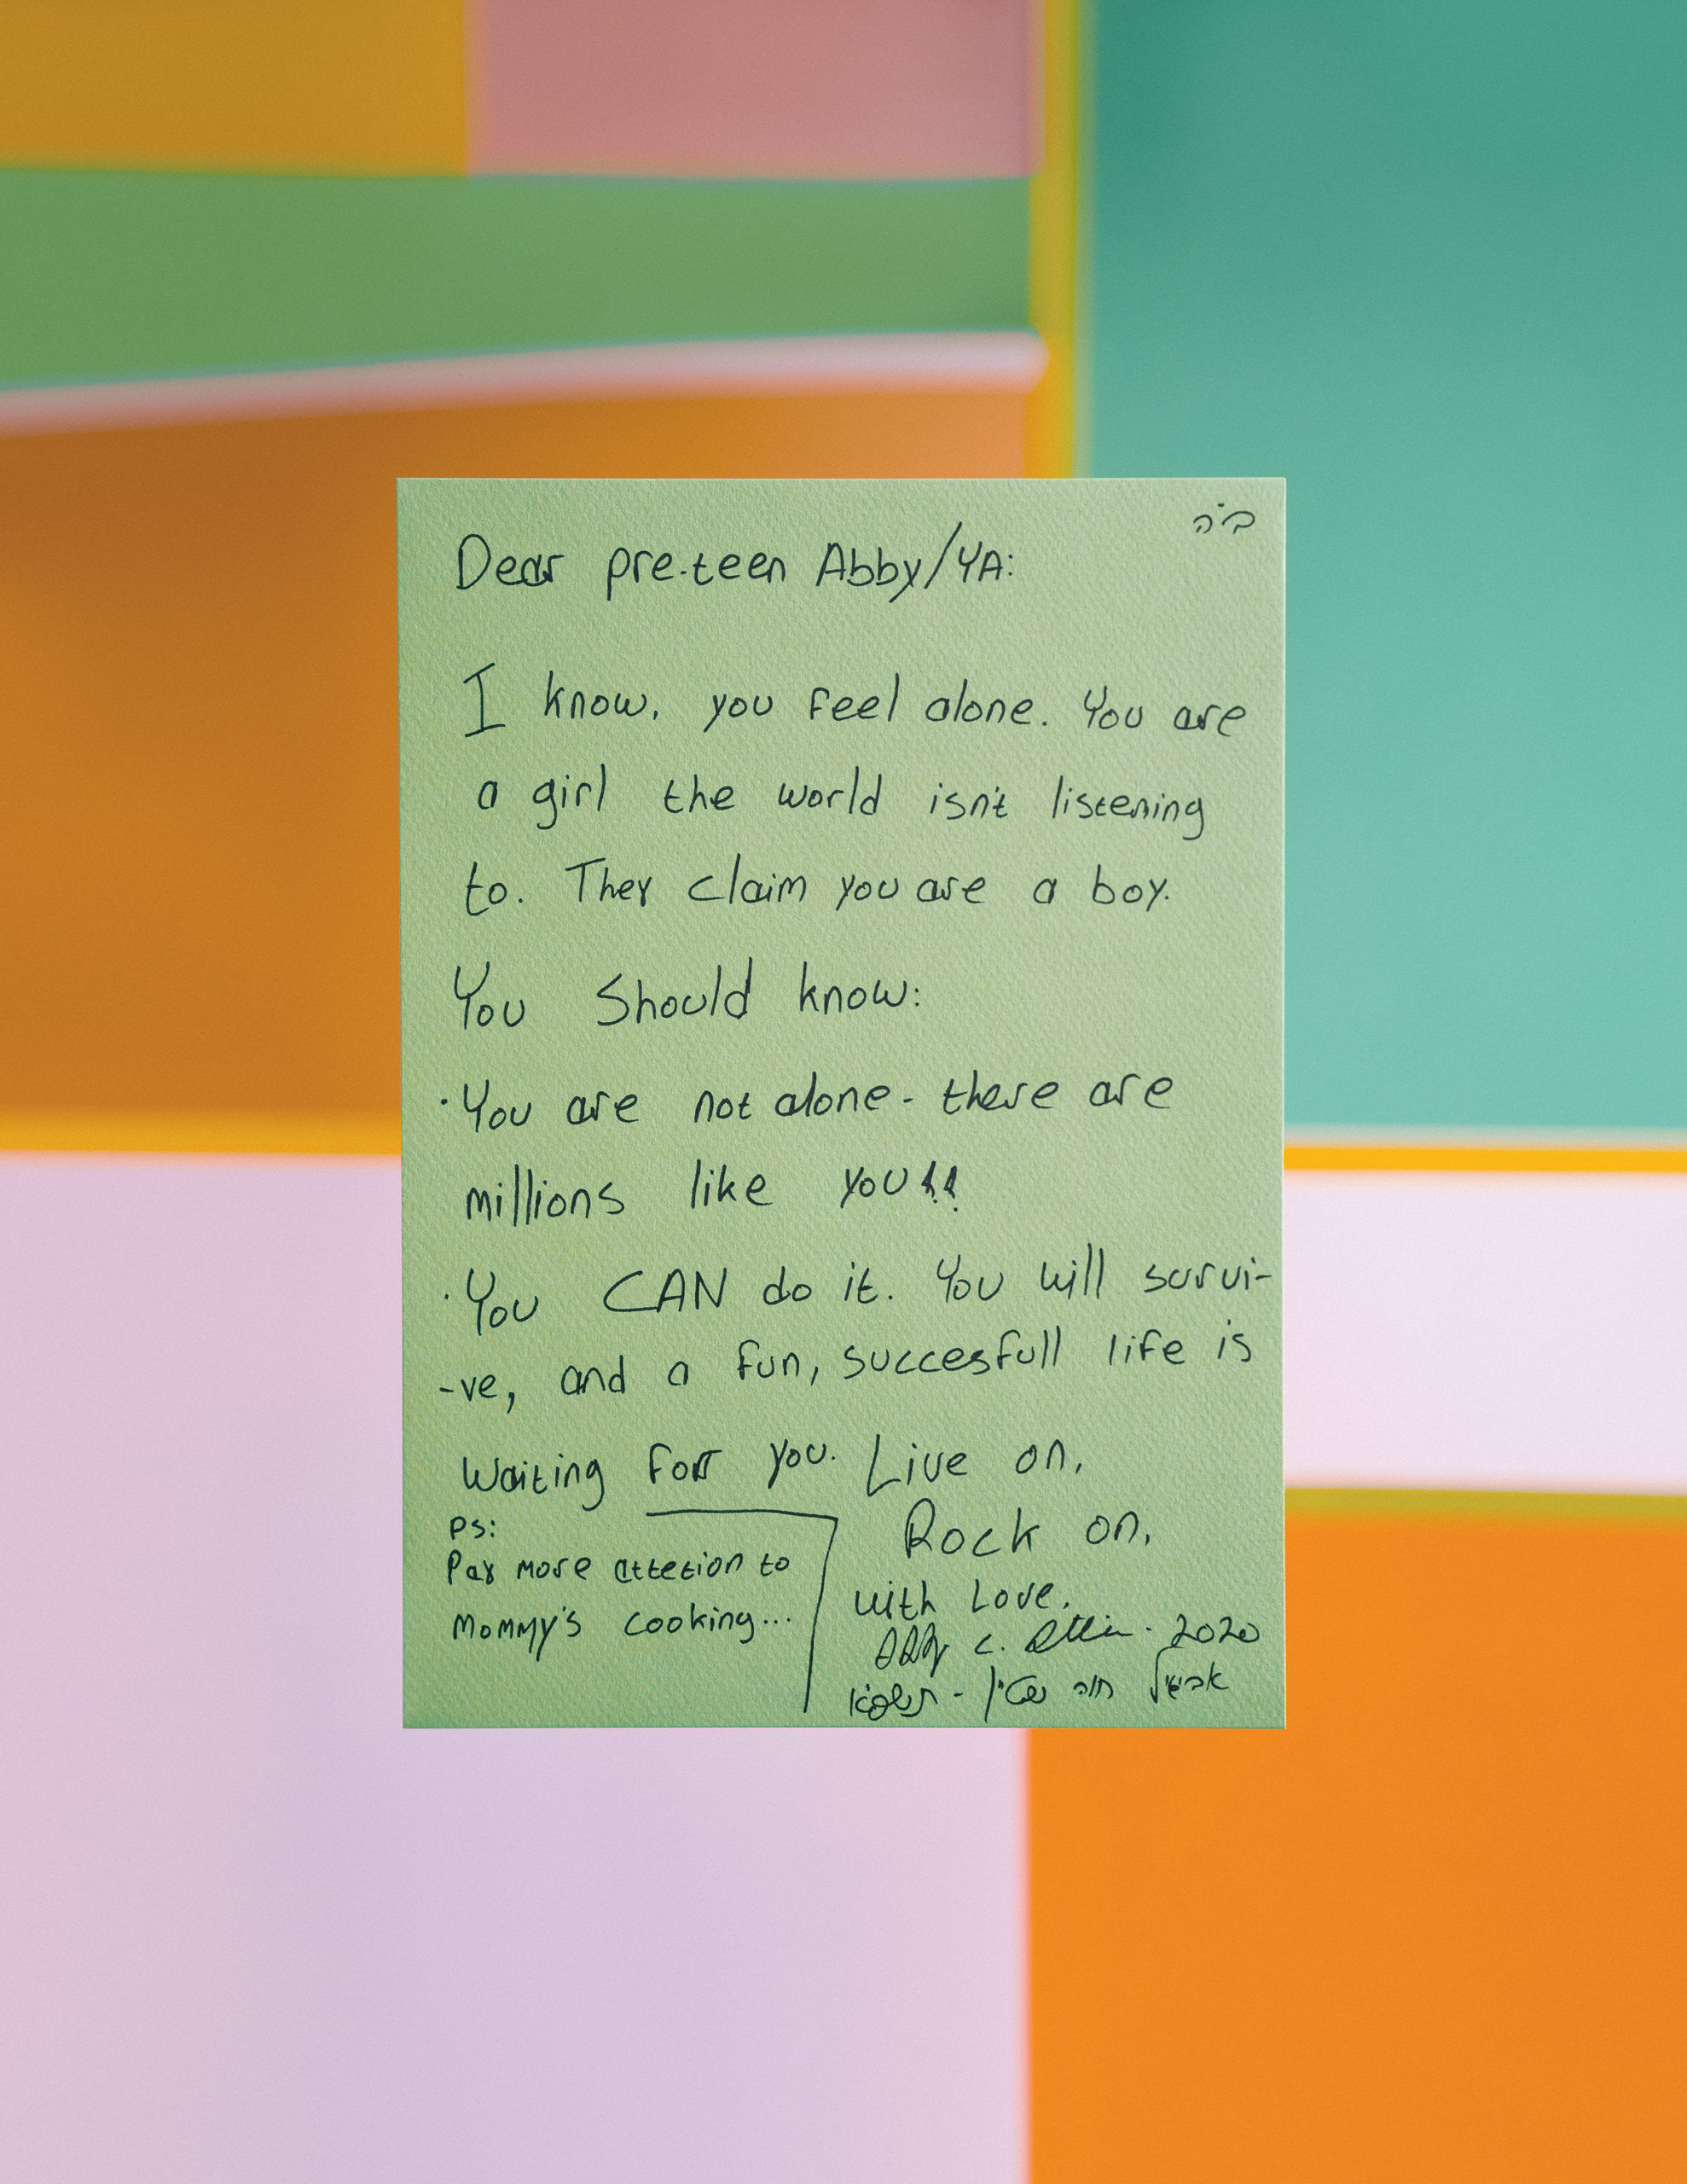 ב"ה
Dear pre-teen Abby/YA:
I know, you feel alone. You are
a girl the world isn't listening
to. They claim you are a boy.
You should know:
· You are not alone - there are
millions like you!!
· You CAN do it. You will survi-
-ve, and a fun, succesfull life is
waiting for you. Live on,
Rock on,
with Love,
Abby C. Stein - 2020
אביגיל חוה שטיין -
PS:
Pay more attetion to
Mommy's cooking...